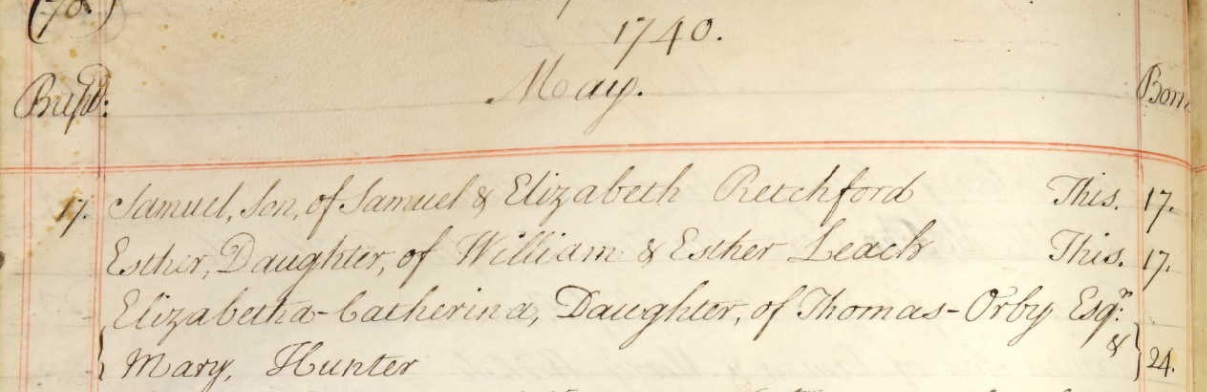 (78)
1740.
May.
Bapd:
Born
17. Samuel, Son, of Samuel & Elizabeth Retchford This. 17.
Esther, Daughter, of William & Esther Leach This. 17.
Elizabetha-Catherina, Daughter, of Thomas-Orby Esqr: &
Mary, Hunter 24.